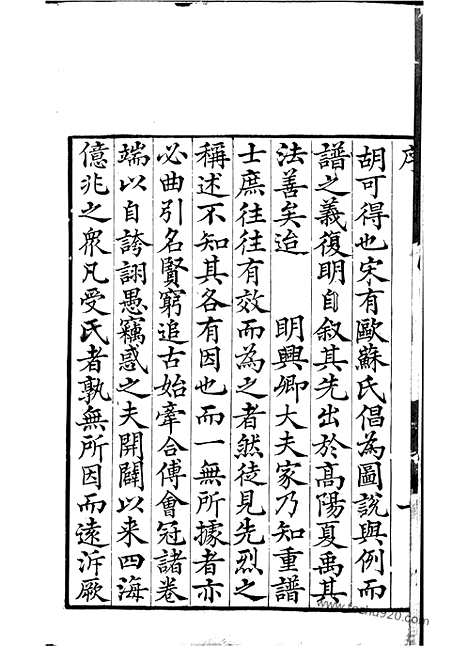 序
胡可得也宋有歐蘇氏倡為圖說與例而
譜之義復明自叙其先出於高陽夏禹其
法善矣迨　　明興卿大夫家乃知重譜
士庶往往有效而為之者然徒見先烈之
稱述不知其各有因也而一無所據者亦
必曲引名賢窮追古始牽合傅會冠諸卷
端以自誇詡愚竊惑之夫開闢以来四海
億兆之衆凡受氏者孰無所因而遠泝厥